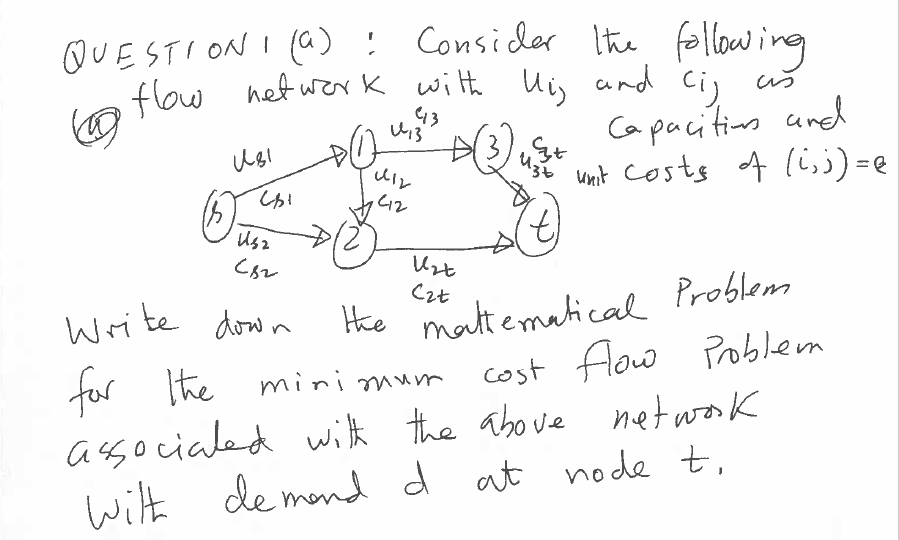 QUESTION 1 (a) : Consider the following
flow network with uij and cij as
capacities and
unit costs of (i,j)=e
us1
cs1
us2
cs2
u13 c13
u12
c12
u3t c3t
u2t
c2t
s
1
2
3
t
Write down the mathematical Problem
for the minimum cost flow Problem
associated with the above network
With demand d at node t.